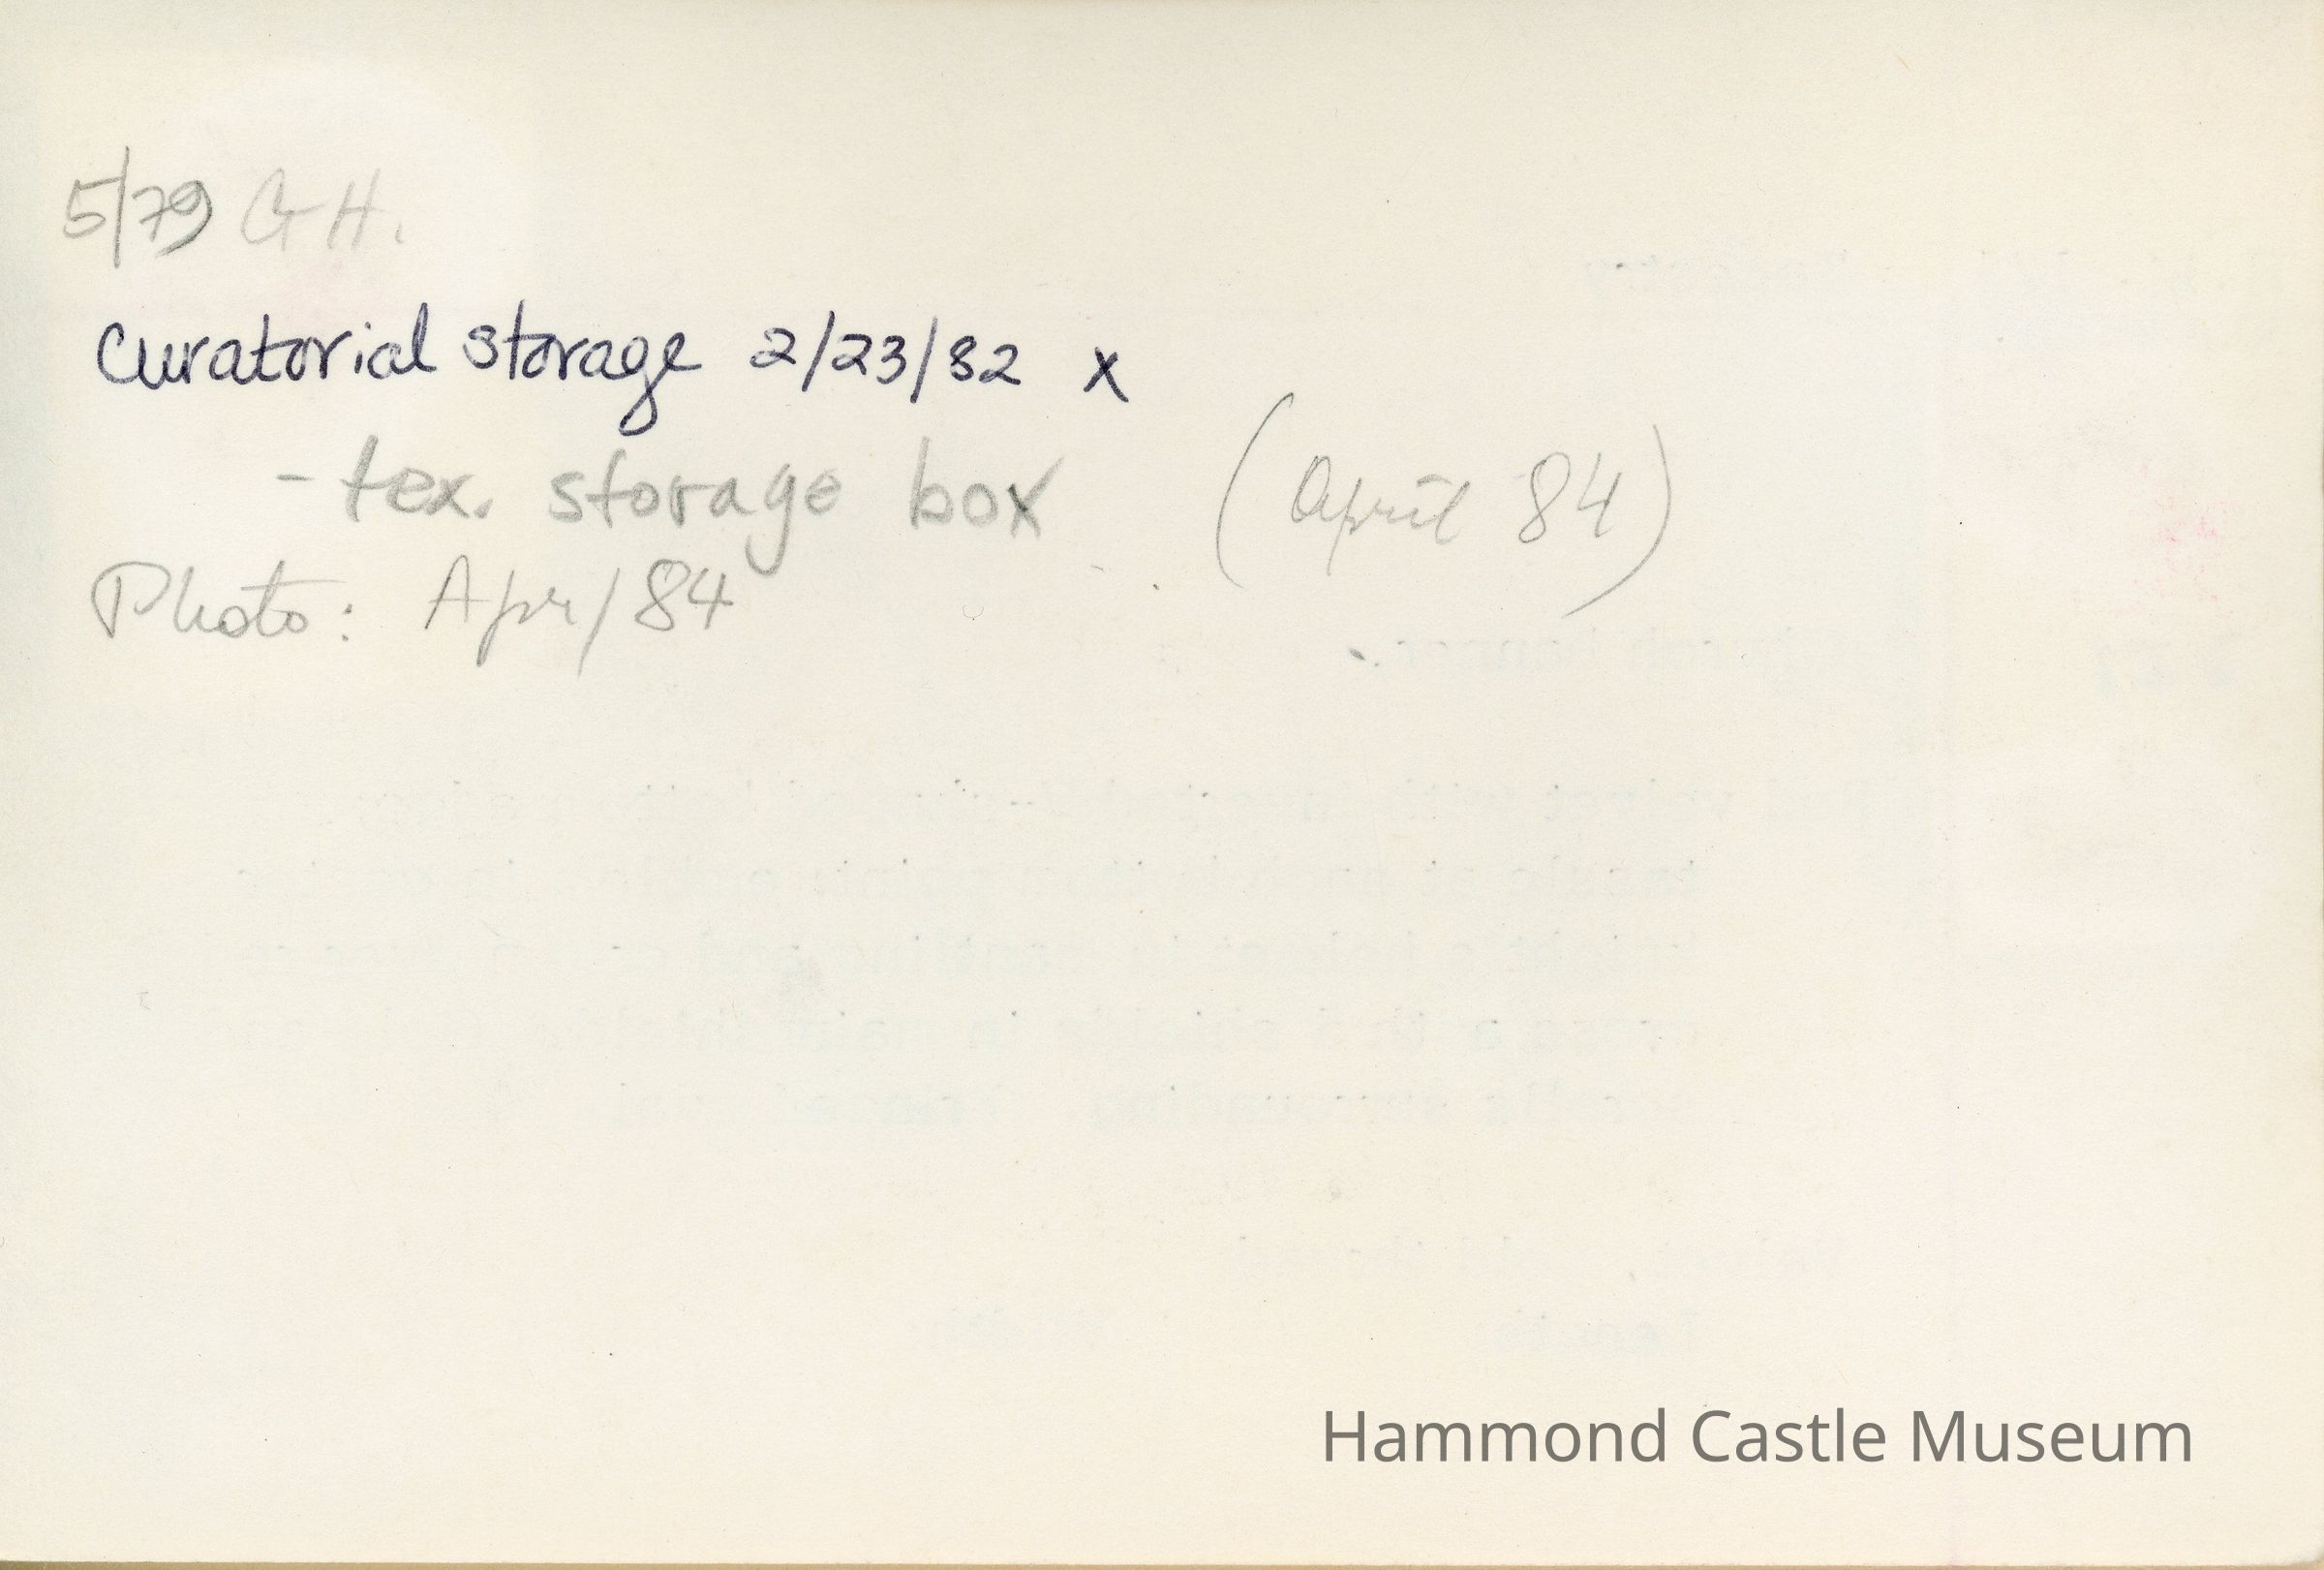 5/79 G.H.
Curatorial storage 2/23/82 x
- tex. storage box (April 84)
Photo: Apr/84
Hammond Castle Museum